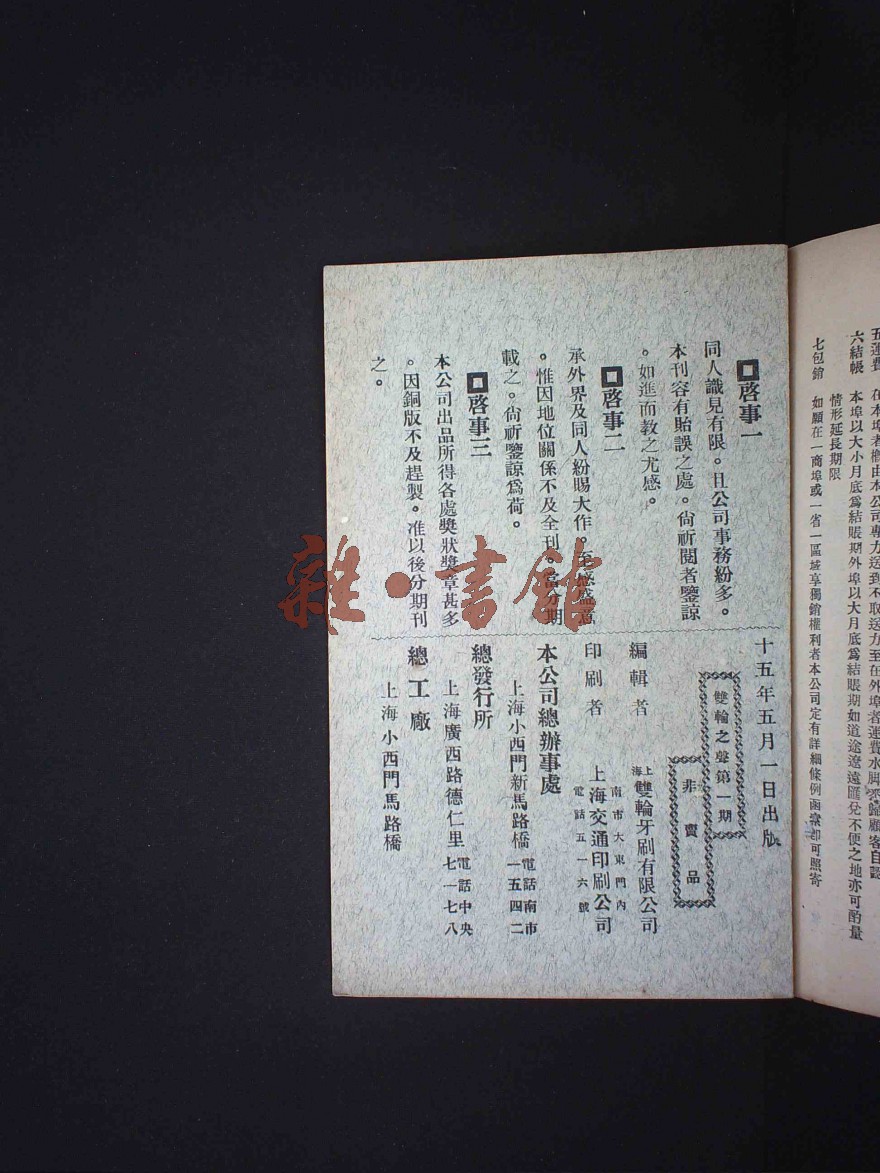 五運費　在本埠者概由本公司專力送到不取送力至在外埠者運費水脚歸顧客自認
六結帳　本埠以大小月底爲結賬期外埠以大月底爲結賬期如道途遼遠匯兌不便之地亦可酌量
情形延長期限
七包銷　如願在一商埠或一省一區域享獨銷權利者本公司定有詳細條例函索卽可照寄
啓事一
同人識見有限。且公司事務紛多。
本刊容有貽誤之處。尙祈閱者鑒諒
。如進而敎之尤感。
啓事二
承外界及同人紛賜大作。至感盛意
。惟因地位關係不及全刊。當分期
載之。尙祈鑒諒爲荷。
啓事三
本公司出品所得各處奬狀奬章甚多
。因銅版不及趕製。准以後分期刊
之。
十五年五月一日出版
雙輪之聲第一期
非賣品
編輯者　上海雙輪牙刷有限公司
印刷者　上海交通印刷公司
南市大東門內
電話五一六號
本公司總辦事處
上海小西門新馬路橋　電話南市一五四二
總發行所
上海廣西路德仁里　電話中央七一七八
總工廠
上海小西門馬路橋
雜·書館